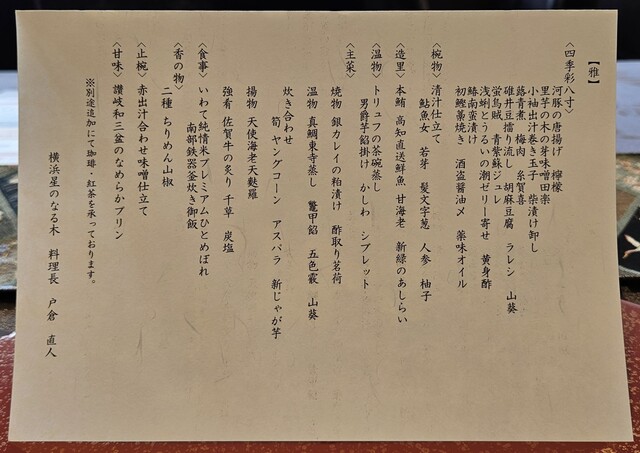 【雅】
〈四季彩八寸〉
河豚の唐揚げ 檸檬
里芋の木の芽味噌田楽
小袖出汁巻き玉子 柴漬け卸し
蕗青煮 梅肉 糸賀喜
碓井豆擂り流し 胡麻豆腐 ラレシ 山葵
蛍烏賊 青紫蘇ジュレ
浅蜊とうるいの潮ゼリー寄せ 黄身酢
鰆南蛮漬け
初鰹藁焼き 酒盗醤油〆 薬味オイル
〈椀物〉
清汁仕立て
鮎魚女 若芽 髪文字葱 人参 柚子
〈造里〉
本鮪 高知直送鮮魚 甘海老 新緑のあしらい
〈温物〉
トリュフの茶碗蒸し
男爵芋餡掛け かしわ シブレット
〈主菜〉
焼物 銀カレイの粕漬け 酢取り茗荷
温物 真鯛東寺蒸し 鼈甲餡 五色霰 山葵
炊き合わせ
筍 ヤングコーン アスパラ 新じゃが芋
揚物 天使海老天麩羅
強肴 佐賀牛の炙り 千草 炭塩
〈食事〉
いわて純情米プレミアムひとめぼれ
南部鉄器釜炊き御飯
〈香の物〉
二種 ちりめん山椒
〈止椀〉
赤出汁合わせ味噌仕立て
〈甘味〉
讃岐和三盆のなめらかプリン
※別途追加にて珈琲・紅茶を承っております。
横浜星のなる木 料理長 戸倉 直人